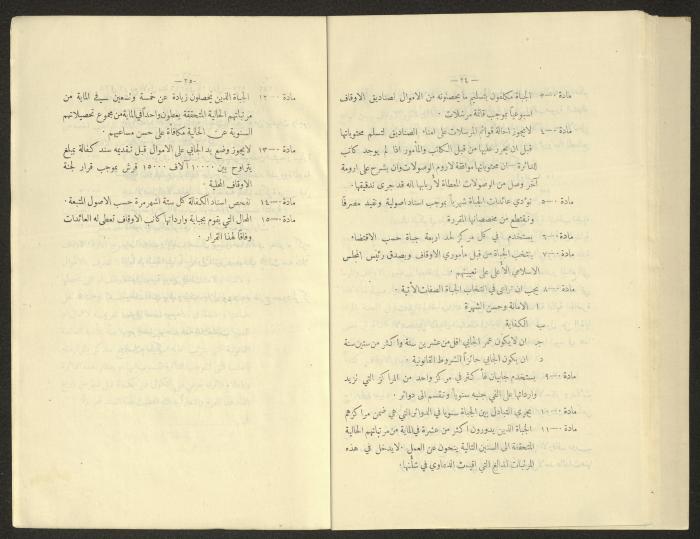 — ٢٤ —
مادة —٣ الجباة مكلفون بتسليم ما يحصلونه من الاموال لصناديق الاوقاف
اسبوعياً بموجب قائمة مرسلات
مادة —٤ لايجوز احالة قوائم المرسلات على امناء الصناديق لتسلم محتوياتها
قبل ان يحرر عليها من قبل الكاتب والمأمور اذا لم يوجد كاتب
للدائرة — ان محتوياتها موافقة لاروم الوصولات وان يشرح على ارومة
آخر وصل من الوصولات المعطاة لأربابها انه قد جرى تدقيقها.
مادة —٥ تؤدي عائدات الجباة شهرياً بموجب اسناد اصولية وتقيد مصرفاً
وتقتطع من مخصصاتها المقررة
مادة —٦ يستخدم في كل مركز لحد اربعة جباة حسب الاقتضاء.
مادة —٧ ينتخب الجباة من قبل مأموري الاوقاف ويصدق رئيس المجلس
الاسلامي الأعلى على تعيينهم.
مادة —٨ يجب ان تراعى في انتخاب الجباة الصفات الآتية.
ا الامانة وحسن الشهرة
ب الكفاية
ج ان لا يكون عمر الجابي اقل من عشرين سنة واكثر من ستين سنة
د ان يكون الجابي حائزاً الشروط القانونية.
مادة —٩ يستخدم جابيان فأكثر في مركز واحد من المراكز التي تزيد
وارداتها على الفي جنيه سنوياً وتقسم الى دوائر.
مادة —١٠ يجري التبادل بين الجباة سنويا في الدوائر التي هي ضمن مراكزهم
مادة —١١ الجباة الذين يدورون اكثر من عشرة في الماية من مرتباتهم الحالية
المتحققة الى السنين التالية ينحون عن العمل. لايدخل في هذه
المرتبات المبالغ التي اقيمت الدعاوي في شأنها.
— ٢٥ —
مادة —١٢ الجباة الذين يحصلون زيادة عن خمسة وتسعين في الماية من
مرتباتهم الحالية المتحققة يعطون واحداً في الماية من مجموع تحصيلاتهم
السنوية عن الحالية مكافأة على حسن مساعيهم.
مادة —١٣ لايجوز وضع يد الجابي على الاموال قبل تقديمه سند كفالة بمبلغ
يتراوح بين ١٠٠٠٠ آلاف و ١٥٠٠٠ قرش بموجب قرار لجنة
الاوقاف المحلية.
مادة —١٤ تفحص اسناد الكفالة كل ستة اشهر مرة حسب الاصول المتبعة.
مادة —١٥ المحال التي يقوم بجباية وارداتها كاتب الاوقاف تعطى له العائدات
وفاقاً لهذا القرار.